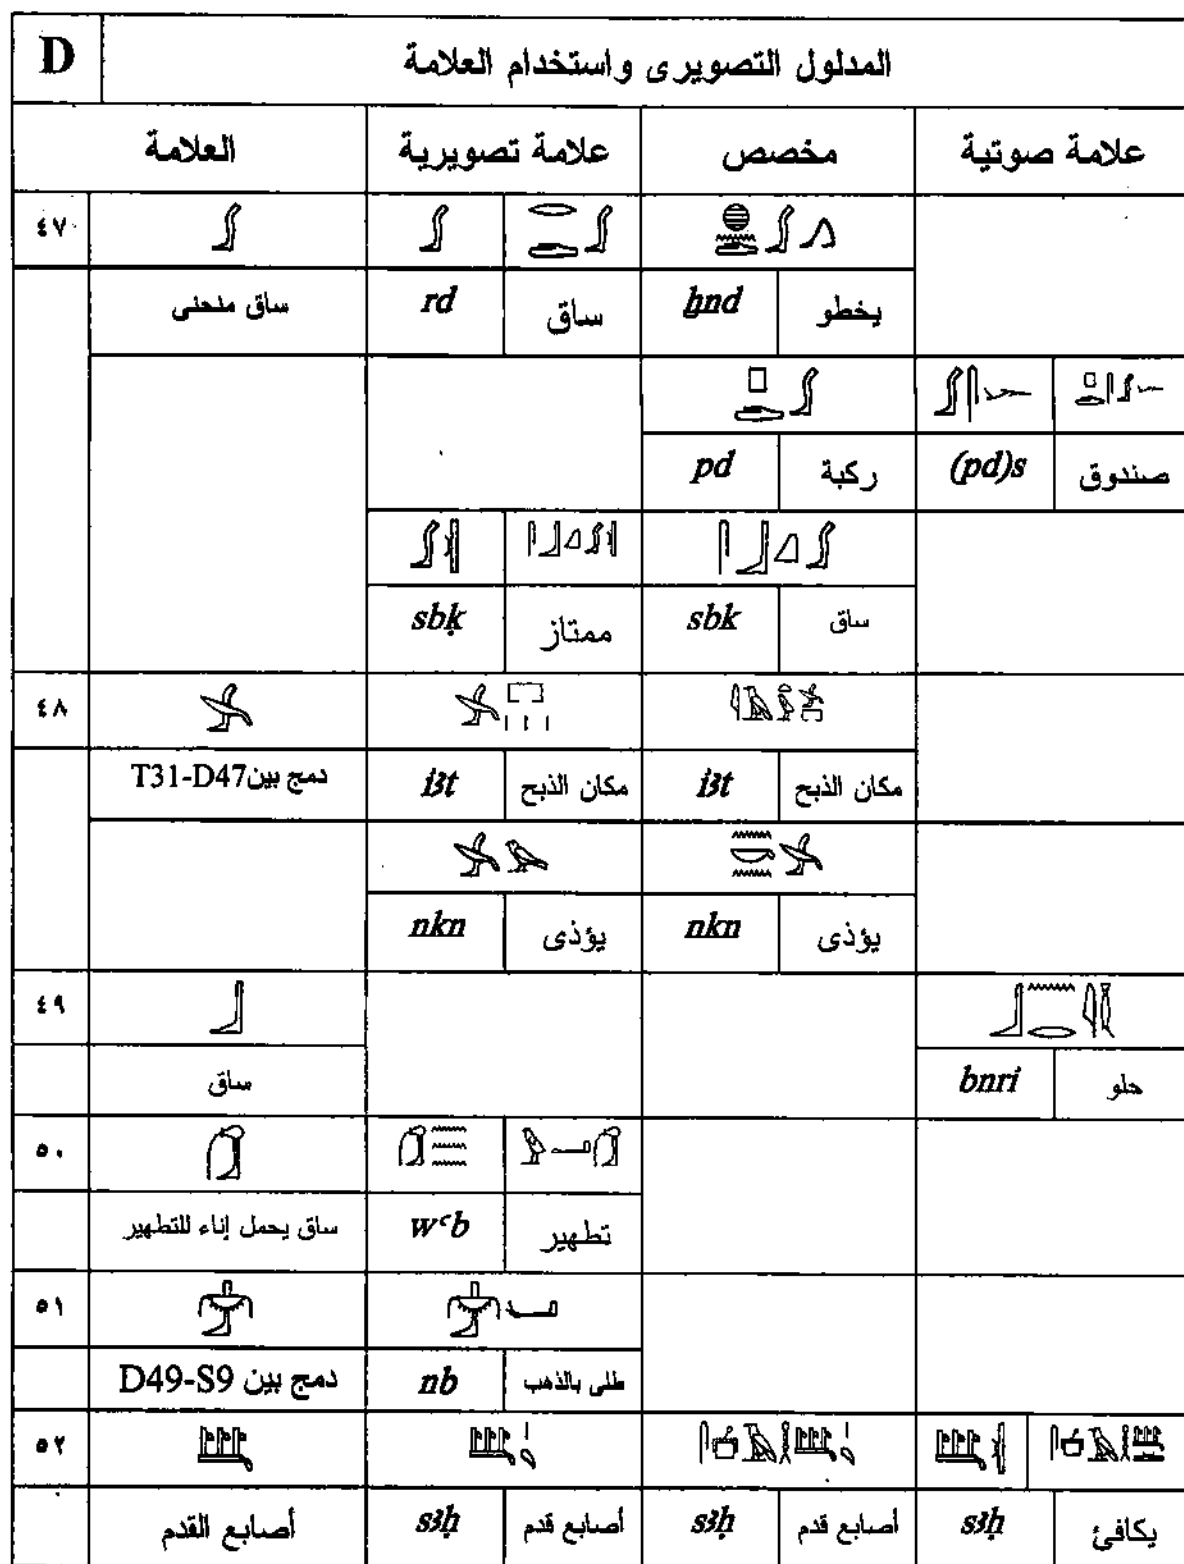 D المدلول التصويرى واستخدام العلامة
العلامة علامة تصويرية مخصص علامة صوتية
٤٧
ساق منحنى rd ساق ẖnd يخطو
pd ركبة (pd)s صندوق
sbḳ ممتاز sbk ساق
٤٨
دمج بين T31-D47 i3t مكان الذبح i3t مكان الذبح
nkn يؤذى nkn يؤذى
٤٩
ساق bnri حلو
٥٠
ساق يحمل إناء للتطهير wʿb تطهير
٥١
دمج بين D49-S9 nb طلى بالذهب
٥٢
أصابع القدم s3ḥ أصابع قدم s3ḥ أصابع قدم s3ḥ يكافئ